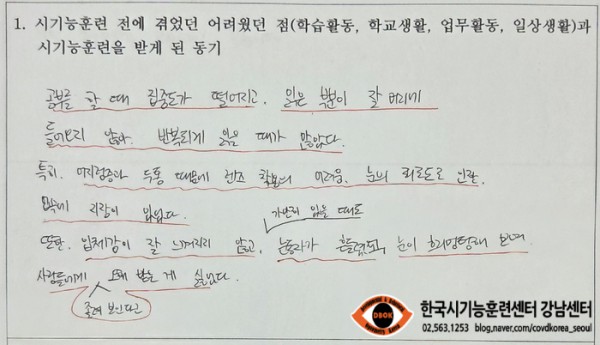 1. 시기능훈련 전에 겪었던 어려웠던 점(학습활동, 학교생활, 업무활동, 일상생활)과
시기능훈련을 받게 된 동기
공부를 할 때 집중도가 떨어지고, 읽은 부분이 잘 머리에
들어오지 않아 반복하게 읽을 때가 많았다.
특히, 어지럼증과 두통 때문에 렌즈 착용의 어려움, 눈의 피로도로 인한
지장이 있었다.
가만히 있을 때도
또한, 입체감이 잘 느껴지지 않고, 눈동자가 흔들렸고, 눈이 흐리멍텅해 보여
사람들에게 오해 받는 게 싫었다.
졸려 보인다고
DBOK
한국시기능훈련센터 강남센터
02.563.1253 blog.naver.com/covdkorea_seoul